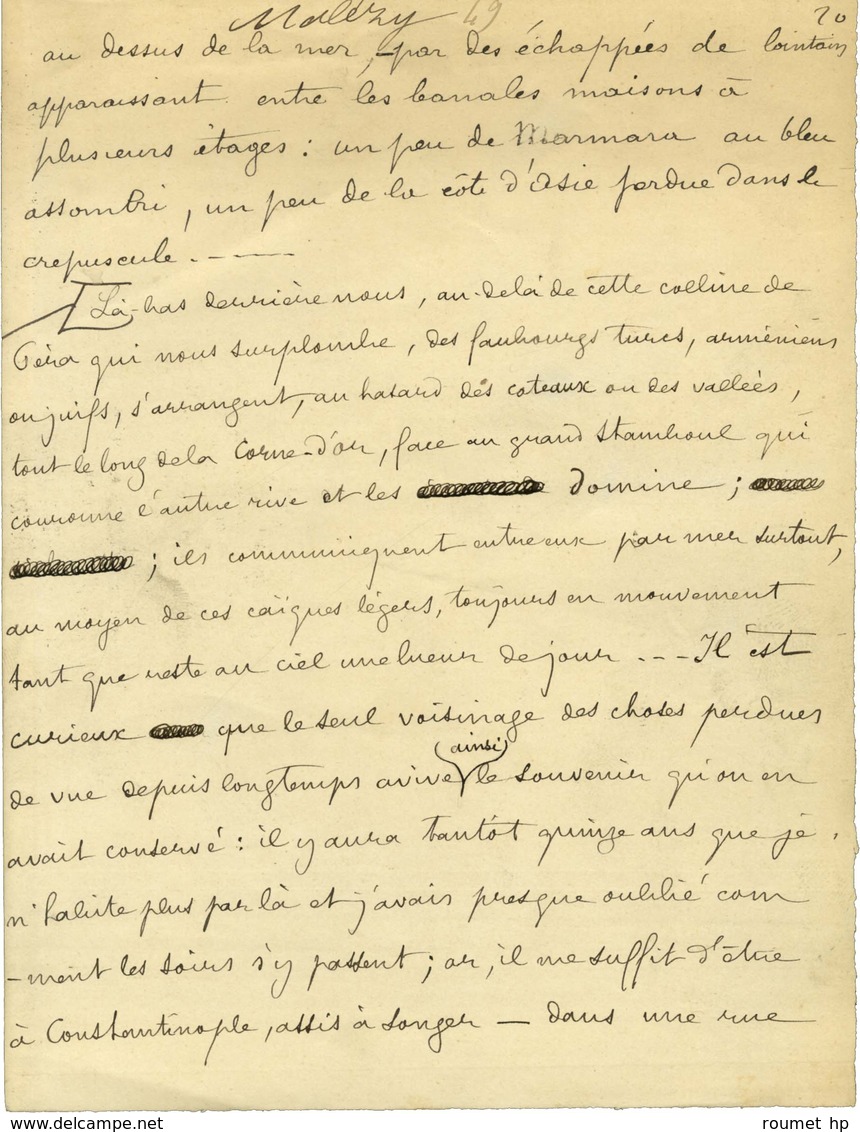 Malézy 49 20
au dessus de la mer, par des échappées de lointain
apparaissant entre les banales maisons à
plusieurs étages : un peu de Marmara au bleu
assombri, un peu de la côte d'Asie perdue dans le
crepuscule. - - - -
[Là-bas derrière nous, au-delà de cette colline de
Péra qui nous surplombe, des faubourgs turcs, arméniens
ou juifs, s'arrangent, au hasard des coteaux ou des vallées,
tout le long de la Corne-d'or, face au grand Stamboul qui
couronne l'autre rive et les domine ;
; ils communiquent entre eux par mer surtout,
au moyen de ces caïques légers, toujours en mouvement
tant que reste au ciel une lueur de jour - - - Il est
curieux que le seul voisinage des choses perdues
(ainsi)
de vue depuis longtemps avive le souvenir qu'on en
avait conservé : il y aura tantôt quinze ans que je
n'habite plus par là et j'avais presque oublié com
-ment les soirs s'y passent ; or, il me suffit d'être
à Constantinople, assis à songer — dans une rue
roumet hp